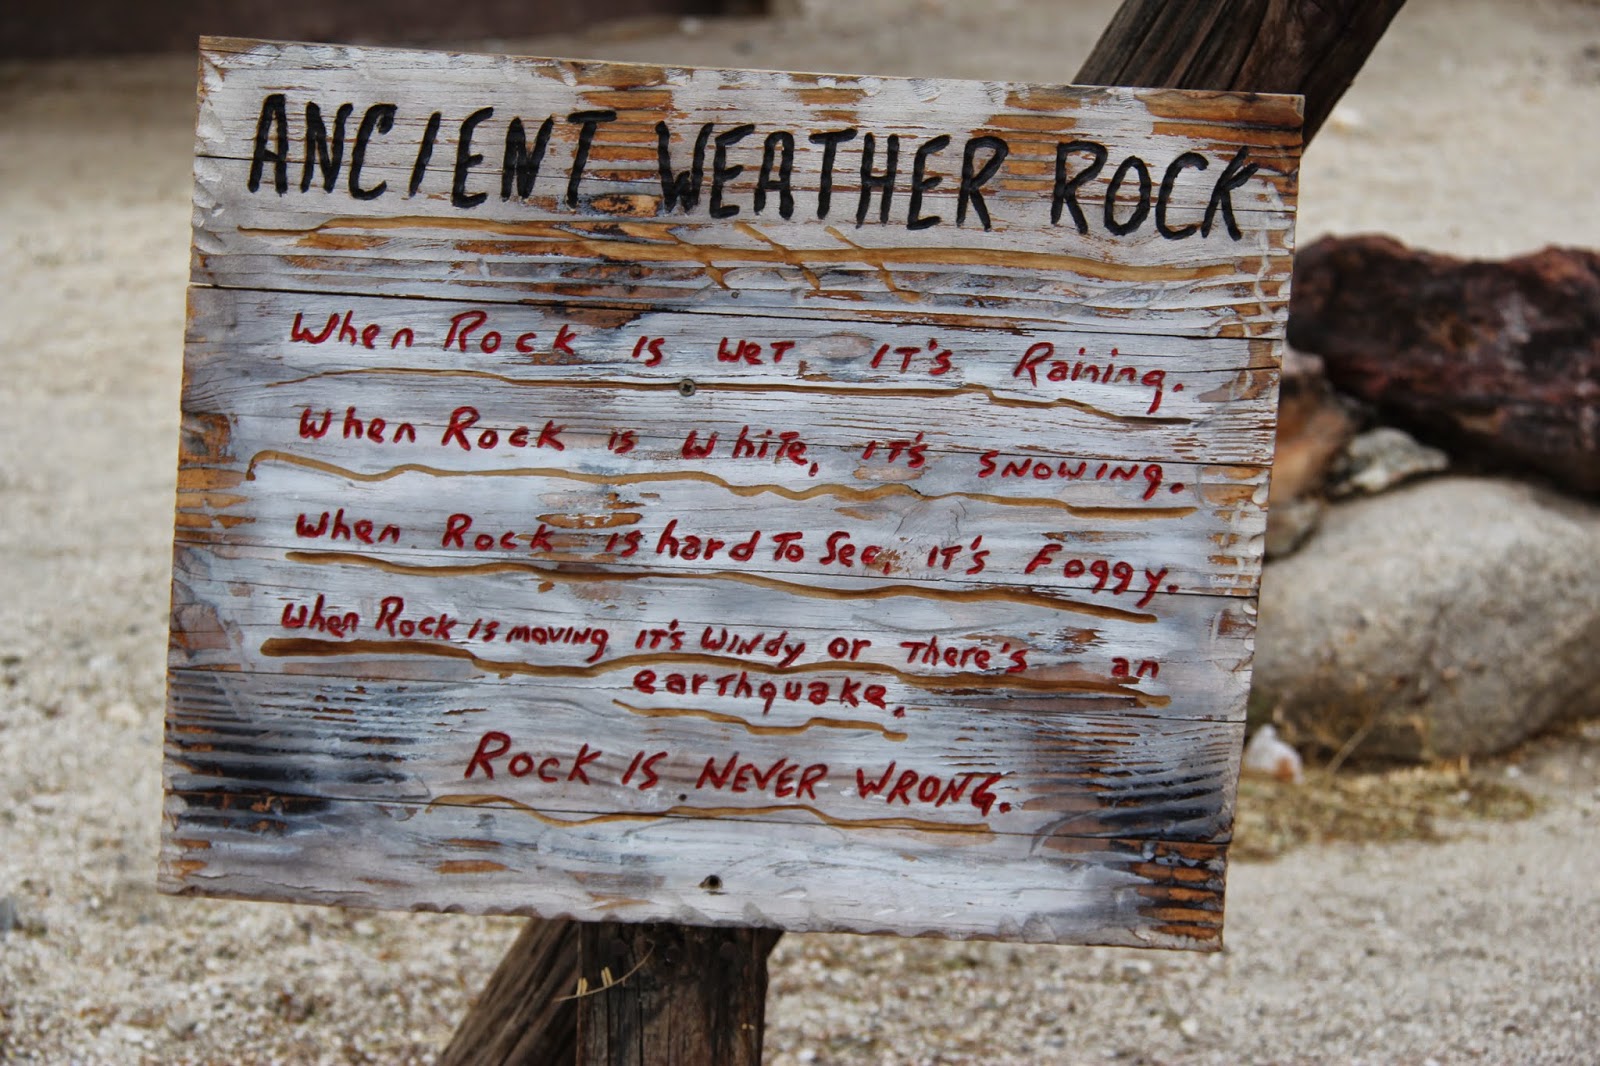 ANCIENT WEATHER ROCK
When Rock is wet, it's Raining.
When Rock is white, it's snowing.
When Rock is hard To See, it's Foggy.
When Rock is moving it's windy or There's an
earthquake.
ROCK IS NEVER WRONG.